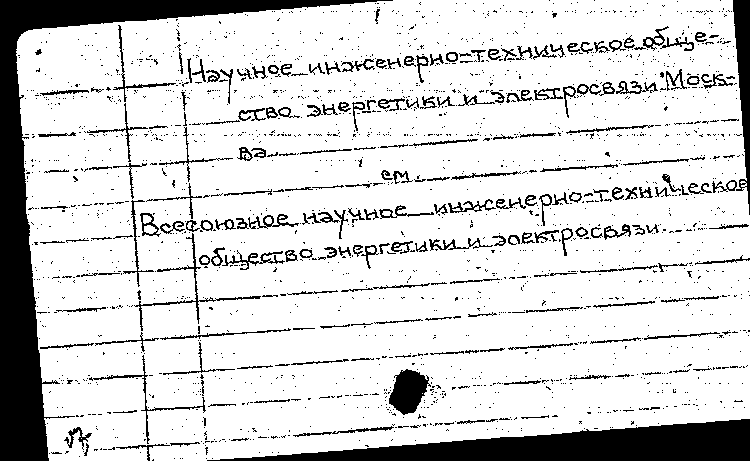 Научное инженерно-техническое обще-
ство энергетики и электросвязи Моск-
ва.
см.
Всесоюзное научное инженерно-техническое
общество энергетики и электросвязи.